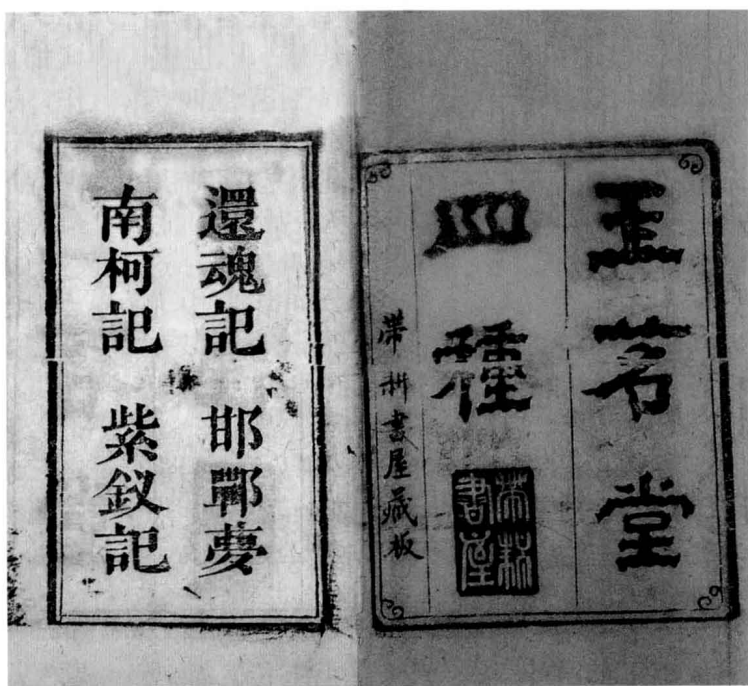 玉茗堂
四種
帶耕書屋藏板
帶耕
書屋
還魂記 邯鄲夢
南柯記 紫釵記